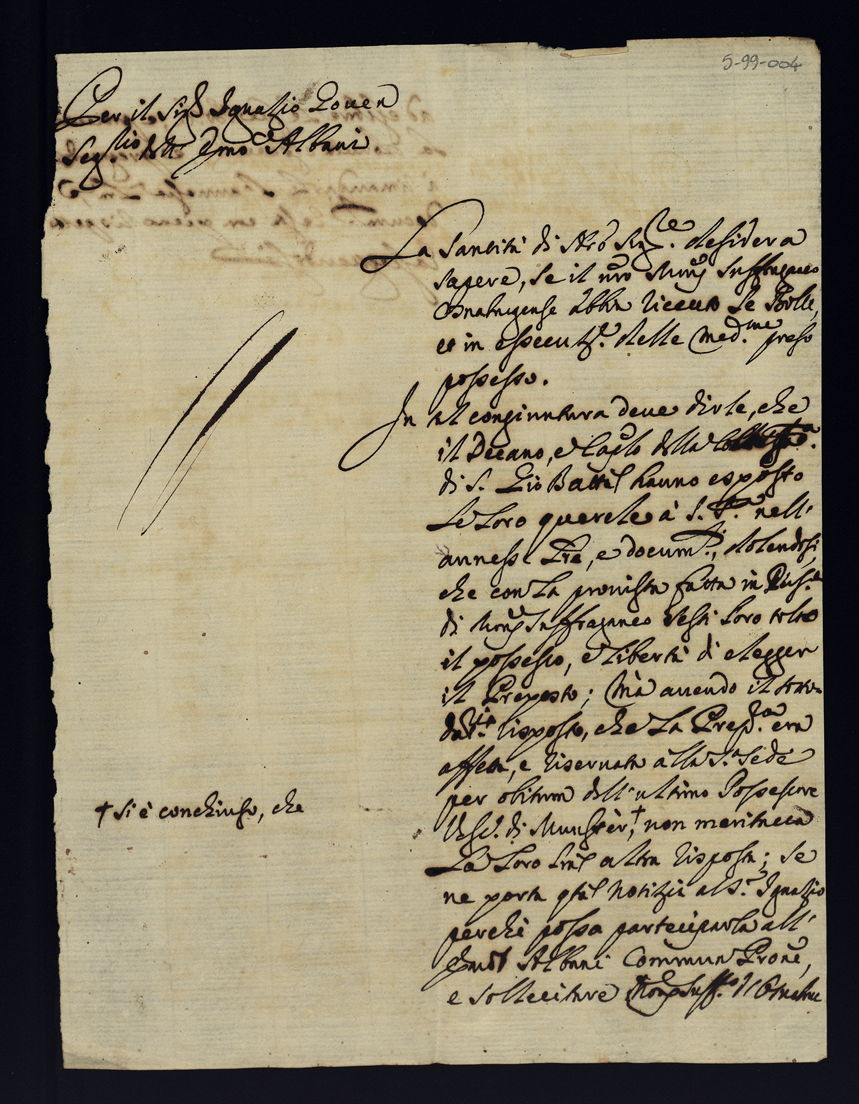 5-99-004
Per il Sig.r Ignatio Loven
Seg.rio dell' Em̃o Albani
La Santità di Nr̃o Sig.re desidera
sapere, se il nr̃o Mons.r Suffraganeo
Osnabrugense abbia riceuto le Bolle,
et in essecuz.e delle Med.me preso
possesso.
In tal congiuntura deue dirle, che
il Decano, e Cap̃lo della
di S. Gio Batt̃ hanno esposto
le loro querele à S. S.tà nell'
annessa Lr̃a, e docum.ti, dolendosi,
che con la prouista fatta in
di Mons.r Suffraganeo resti loro tolto
il possesso, e libertà di elegger
il Preposto; Mà auendo il
dat.rio risposto, che la Prep.ra era
affetta, e riseruata alla S.ta Sede
per obitum dell' ultimo Possessore
Vesc.o di Munster, † non meritaua
† si è conchiuso, che
la loro altra risposta; se
ne porta notizia al S.r Ignatio
perche possa parteciparla all'
Em̃o Albani Com̃un Proñe,
e sollecitare Mons.r Suff.o